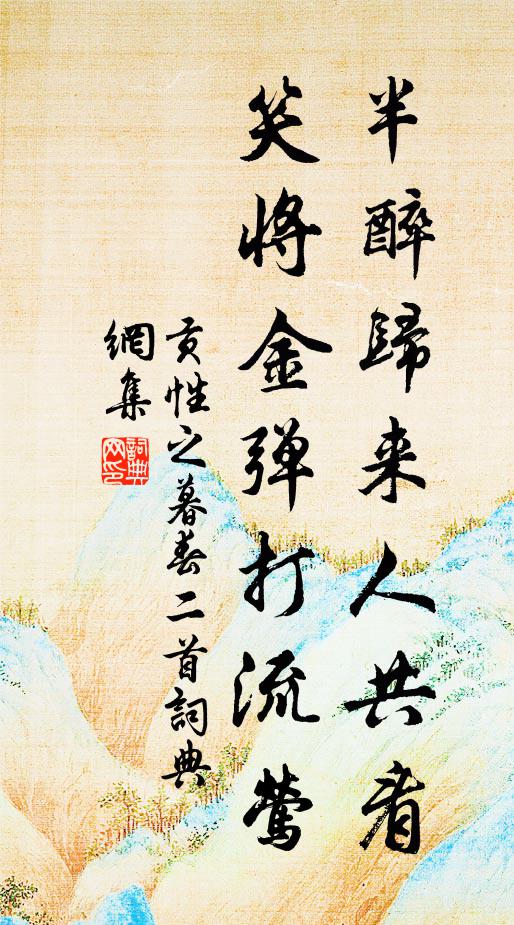 半醉歸来人共看
笑將金弹打流鶯
贡性之暮春二首詞典
網集
詞典網印